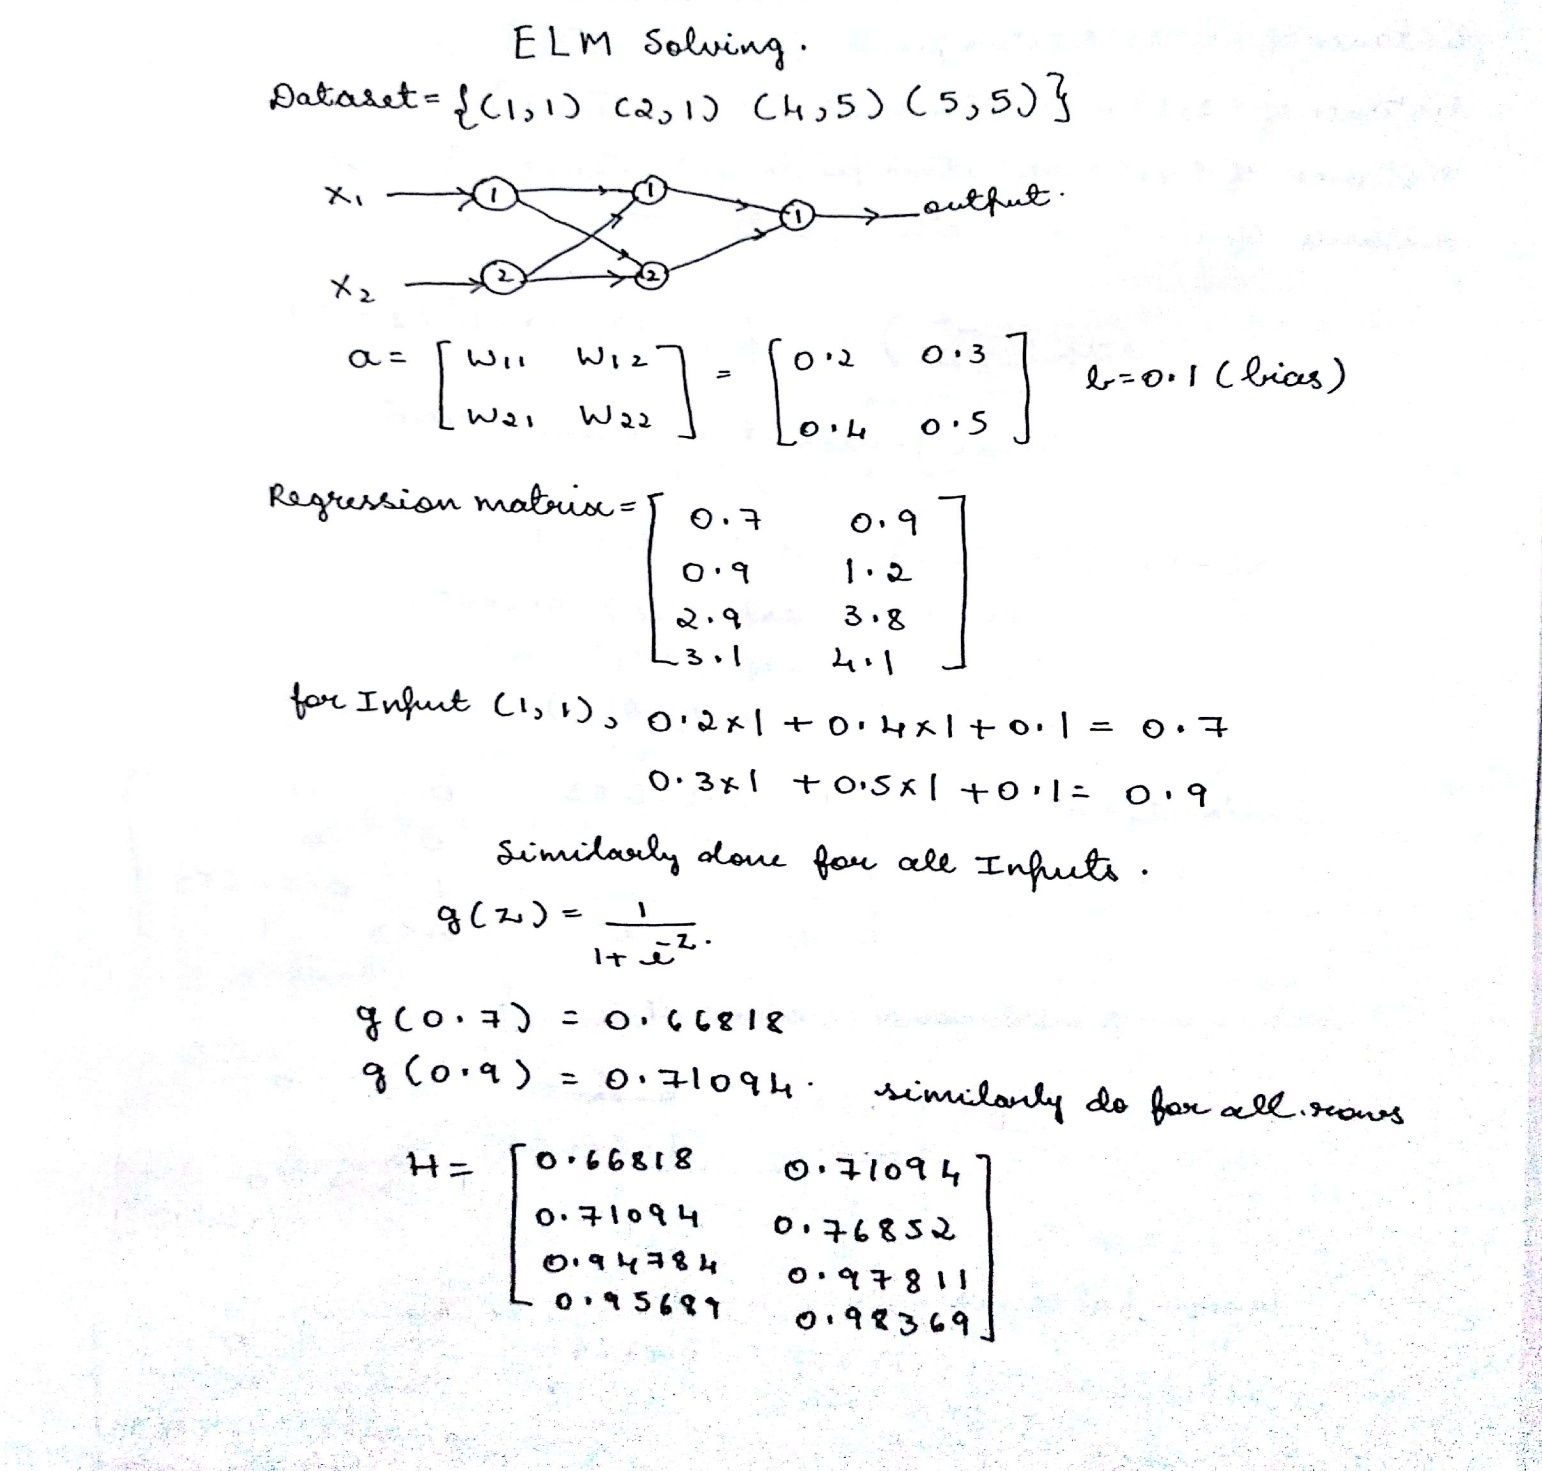 ELM Solving.
Dataset = {(1,1) (2,1) (4,5) (5,5)}
X₁ 1 1 1 output.
X₂ 2 2
a = [ W11 W12 ] = [ 0.2 0.3 ] b=0.1 (bias)
[ W21 W22 ] [ 0.4 0.5 ]
Regression matrix = [ 0.7 0.9 ]
0.9 1.2
2.9 3.8
3.1 4.1
for Input (1,1), 0.2×1 + 0.4×1 + 0.1 = 0.7
0.3×1 + 0.5×1 + 0.1 = 0.9
Similarly done for all Inputs.
g(z) = 1 / (1 + e^-z).
g(0.7) = 0.66818
g(0.9) = 0.71094. similarly do for all rows
H = [ 0.66818 0.71094 ]
0.71094 0.76852
0.94784 0.97811
0.95689 0.98369